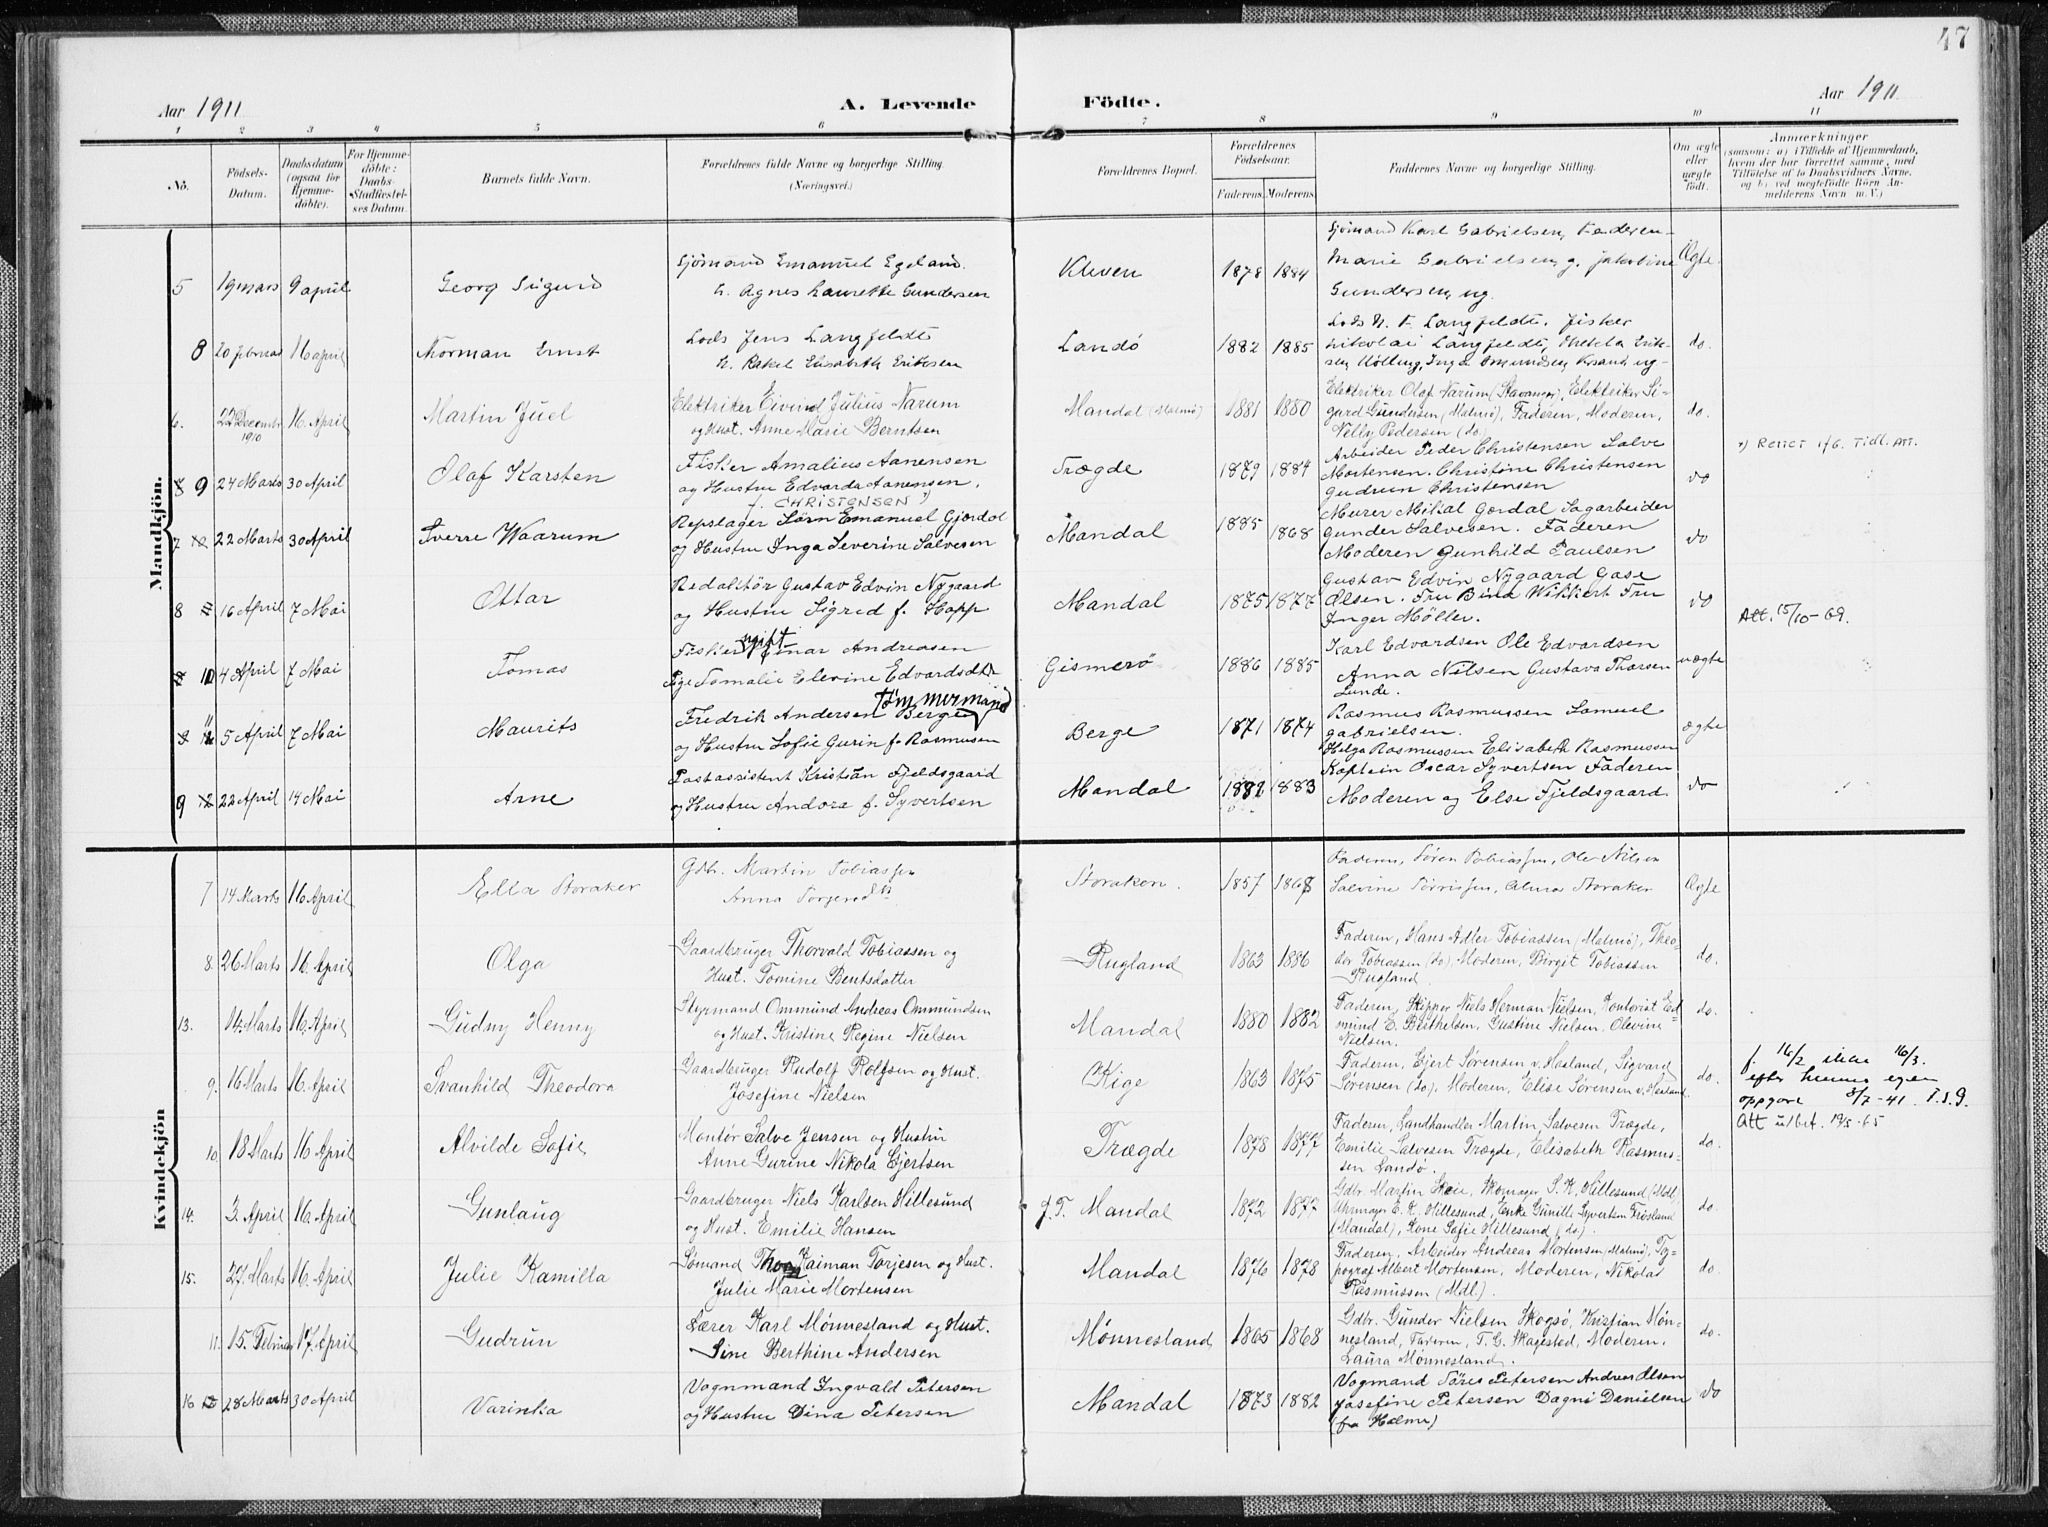 47
Aar 1911
A. Levende Födte.
Aar 1911
1 2 3 4 5 6 7 8 9 10 11
No.
Födsels-Datum.
Daabsdatum (ogsaa for Hjemmedöbte).
For Hjemmedöbte: Daabs-Stadfæstelses Datum.
Barnets fulde Navn.
Forældrenes fulde Navne og borgerlige Stilling.
(Næringsvei.)
Forældrenes Bopæl.
Forældrenes Födselsaar.
Faderens. Moderens.
Faddernes Navne og borgerlige Stilling.
Om ægte eller uægte födt.
Anmærkninger
(saasom: a) i Tilfælde af Hjemmedaab, hvem der har forrettet samme, med Tilföielse af to Daabsvidners Navne, og b) ved uægtefödte Börn Anmelderens Navn m. V.)
Mandkjön.
5 19 mars 9 april Georg Sigurd
Sjömand Emanuel Egeland
h. Agnes Laurette Gundersen
Kleven 1878 1884
Sjömand Karl Gabrielsen, Faderen
Marie Gabrielsen g. Jakobine
Gundersen, ug.
Ægte
8 20 februar 16 april Norman Ernst
Lods Jens Langfeldt
h. Rakel Elisabeth Eriksen
Landö 1882 1885
Lods N. F. Langfeldt. Fisker
Nikolai Langfeldt, Thekla Erik-
sen Kölling, Inga Omundsen Krsand, ug.
do.
6. 22 December 1910 16. April Martin Juel
Elektriker Eivind Julius Narum
og Hust. Anne Marie Berntsen
Mandal (Malmö) 1881 1880
Elektriker Olaf Narum (Stavanger), Elektriker Si-
gurd Gundersen, (Malmö), Faderen, Moderen,
Nelly Pedersen (do)
do.
8 9 24 Marts 30 April Olaf Karsten
Fisker Amalius Aanensen
og Hustru Edvarda Aanensen,
f. CHRISTENSEN *)
Trægde 1879 1884
Arbeider Peder Christensen Salve
Mortensen. Christine Christensen
Gudrun Christensen
do
*) Rettet if6. Tidl. Att.
7 10 22 Marts 30 April Sverre Waarum
Repslager Sörn Emanuel Gjördal
og Hustru Inga Severine Salvesen
Mandal 1885 1868
Murer Milial Gördal Sagarbeider
Gunder Salvesen. Faderen
Moderen Gunhild Paulsen
do
8 11 16 April 7 Mai Ottar
Redaktör Gustav Edvin Nygaard
og Hustru Sigrid f. Hopp
Mandal 1875 1877
Gustav Edvin Nygaard Gase
Olsen. Fru Bina Wikkert Fru
Inger Möller.
do
Att. 15/10-69.
8 10 4 April 7 Mai Tomas
Fisker ugift Einar Andreasen
Pige Tomalie Elevine Edvardsdtr
Gismerö 1886 1885
Karl Edvardsen Ole Edvardsen
Anna Nilsen Gustava Tharsen
Lunde.
uægte
9 11 5 April 7 Mai Maurits
Fredrik Andersen Berge tömmermand
og Hustru Sofie Gurin f. Rasmusen
Berge 1871 1874
Rasmus Rasmussen Samuel
Gabrielsen.
Helga Rasmussen Elisabeth Rasmussen
ægte
9 12 22 April 14 Mai Arne
Postassistent Kristian Fjeldsgaard
og Hustru Andora f. Syvertsen
Mandal 1882 1883
Kaptein Oscar Syvertsen Faderen
Moderen og Else Fjeldsgaard
do
Kvindekjön
7 14 Marts 16 April Ella Storaker
Gdbr. Martin Tobiassen
Anna Torjersdtr
Storaker. 1857 1868
Faderen, Sören Tobiassen, Ole Nilsen
Salvine Törrissen, Alma Storaker
Ægte
8. 26 Marts 16. April Olga
Gaardbruger Thorvald Tobiassen og
Hust. Tomine Berntsdatter
Rugland 1863 1886
Faderen, Hans Adler Tobiassen (Malmö), Theo-
dor Tobiassen (do), Moderen, Birgit Tobiassen
Rugland.
do.
13. 14. Marts 16. April Gudny Henny
Styrmand Ommund Andreas Ommundsen
og Hust. Kristine Regine Nielsen
Mandal 1880 1882
Faderen, Skipper Niels Herman Nielsen, Kontorist Ed-
mund E. Berthelsen, Gustine Nielsen, Olevine
Nielsen.
do.
9. 16 Marts 16. April Svanhild Theodora
Gaardbruger Rudolf Rolfsen og Hust.
Josefine Nielsen
Kige 1863 1875
Faderen, Gjert Sörensen v. Hesland, Sigvard
Sörensen (do), Moderen, Elise Sörensen v. Hesland
do.
f. 16/2 ikke 16/3.
efter hennes egen
oppgave 3/7-41. T.S.G.
10. 18 Marts 16 April Alvilde Sofie
Montör Salve Jensen og Hustru
Anne Gurine Nikola Gjertsen
Trægde 1878 1877
Faderen, Landhandler Martin Salvesen Trægde,
Emilie Salvesen Trægde, Elisabeth Rasmus-
sen Landö.
do.
Att utbet. 19/5-65
14. 3. April 16. April Gunlaug
Gaardbruger Niels Karlsen Hillesund
og Hust. Emilie Hansen
f.T. Mandal 1872 1877
Gdbr. Martin Skeie, Skomager S. K. Hillesund (Mdl)
Uhrmager E. K. Hillesund, Enke Gunille Syvertsen Frösland
(Mandal), Kone Sofie Hillesund (do).
do.
15. 27. Marts 16. April Julie Kamilla
Sömand Kaiman Torjesen og Hust.
Julie Marie Mortensen
Mandal 1876 1878
Faderen, Arbeider Andreas Mortensen (Malmö), Ty-
pograf Albert Mortensen, Moderen, Nikolai
Rasmussen (Mdl).
do.
11. 15. Februar 17. April Gudrun
Lærer Karl Mönnesland og Hust.
Sine Berthine Andersen
Mönnesland 1865 1868
Gdbr. Gunder Nielsen Skogsö, Kristian Mön-
nesland, Faderen, T. G. Skagestad, Moderen,
Laura Mönnesland.
do.
16 12 28 Marts 30 April Varinka
Vognmand Ingvald Petersen
og Hustru Dina Petersen
Mandal 1873 1882
Vogmand Töres Petersen Andreas Olsen
Josefine Petersen Dagni Danielsen
(fra Halme)
do